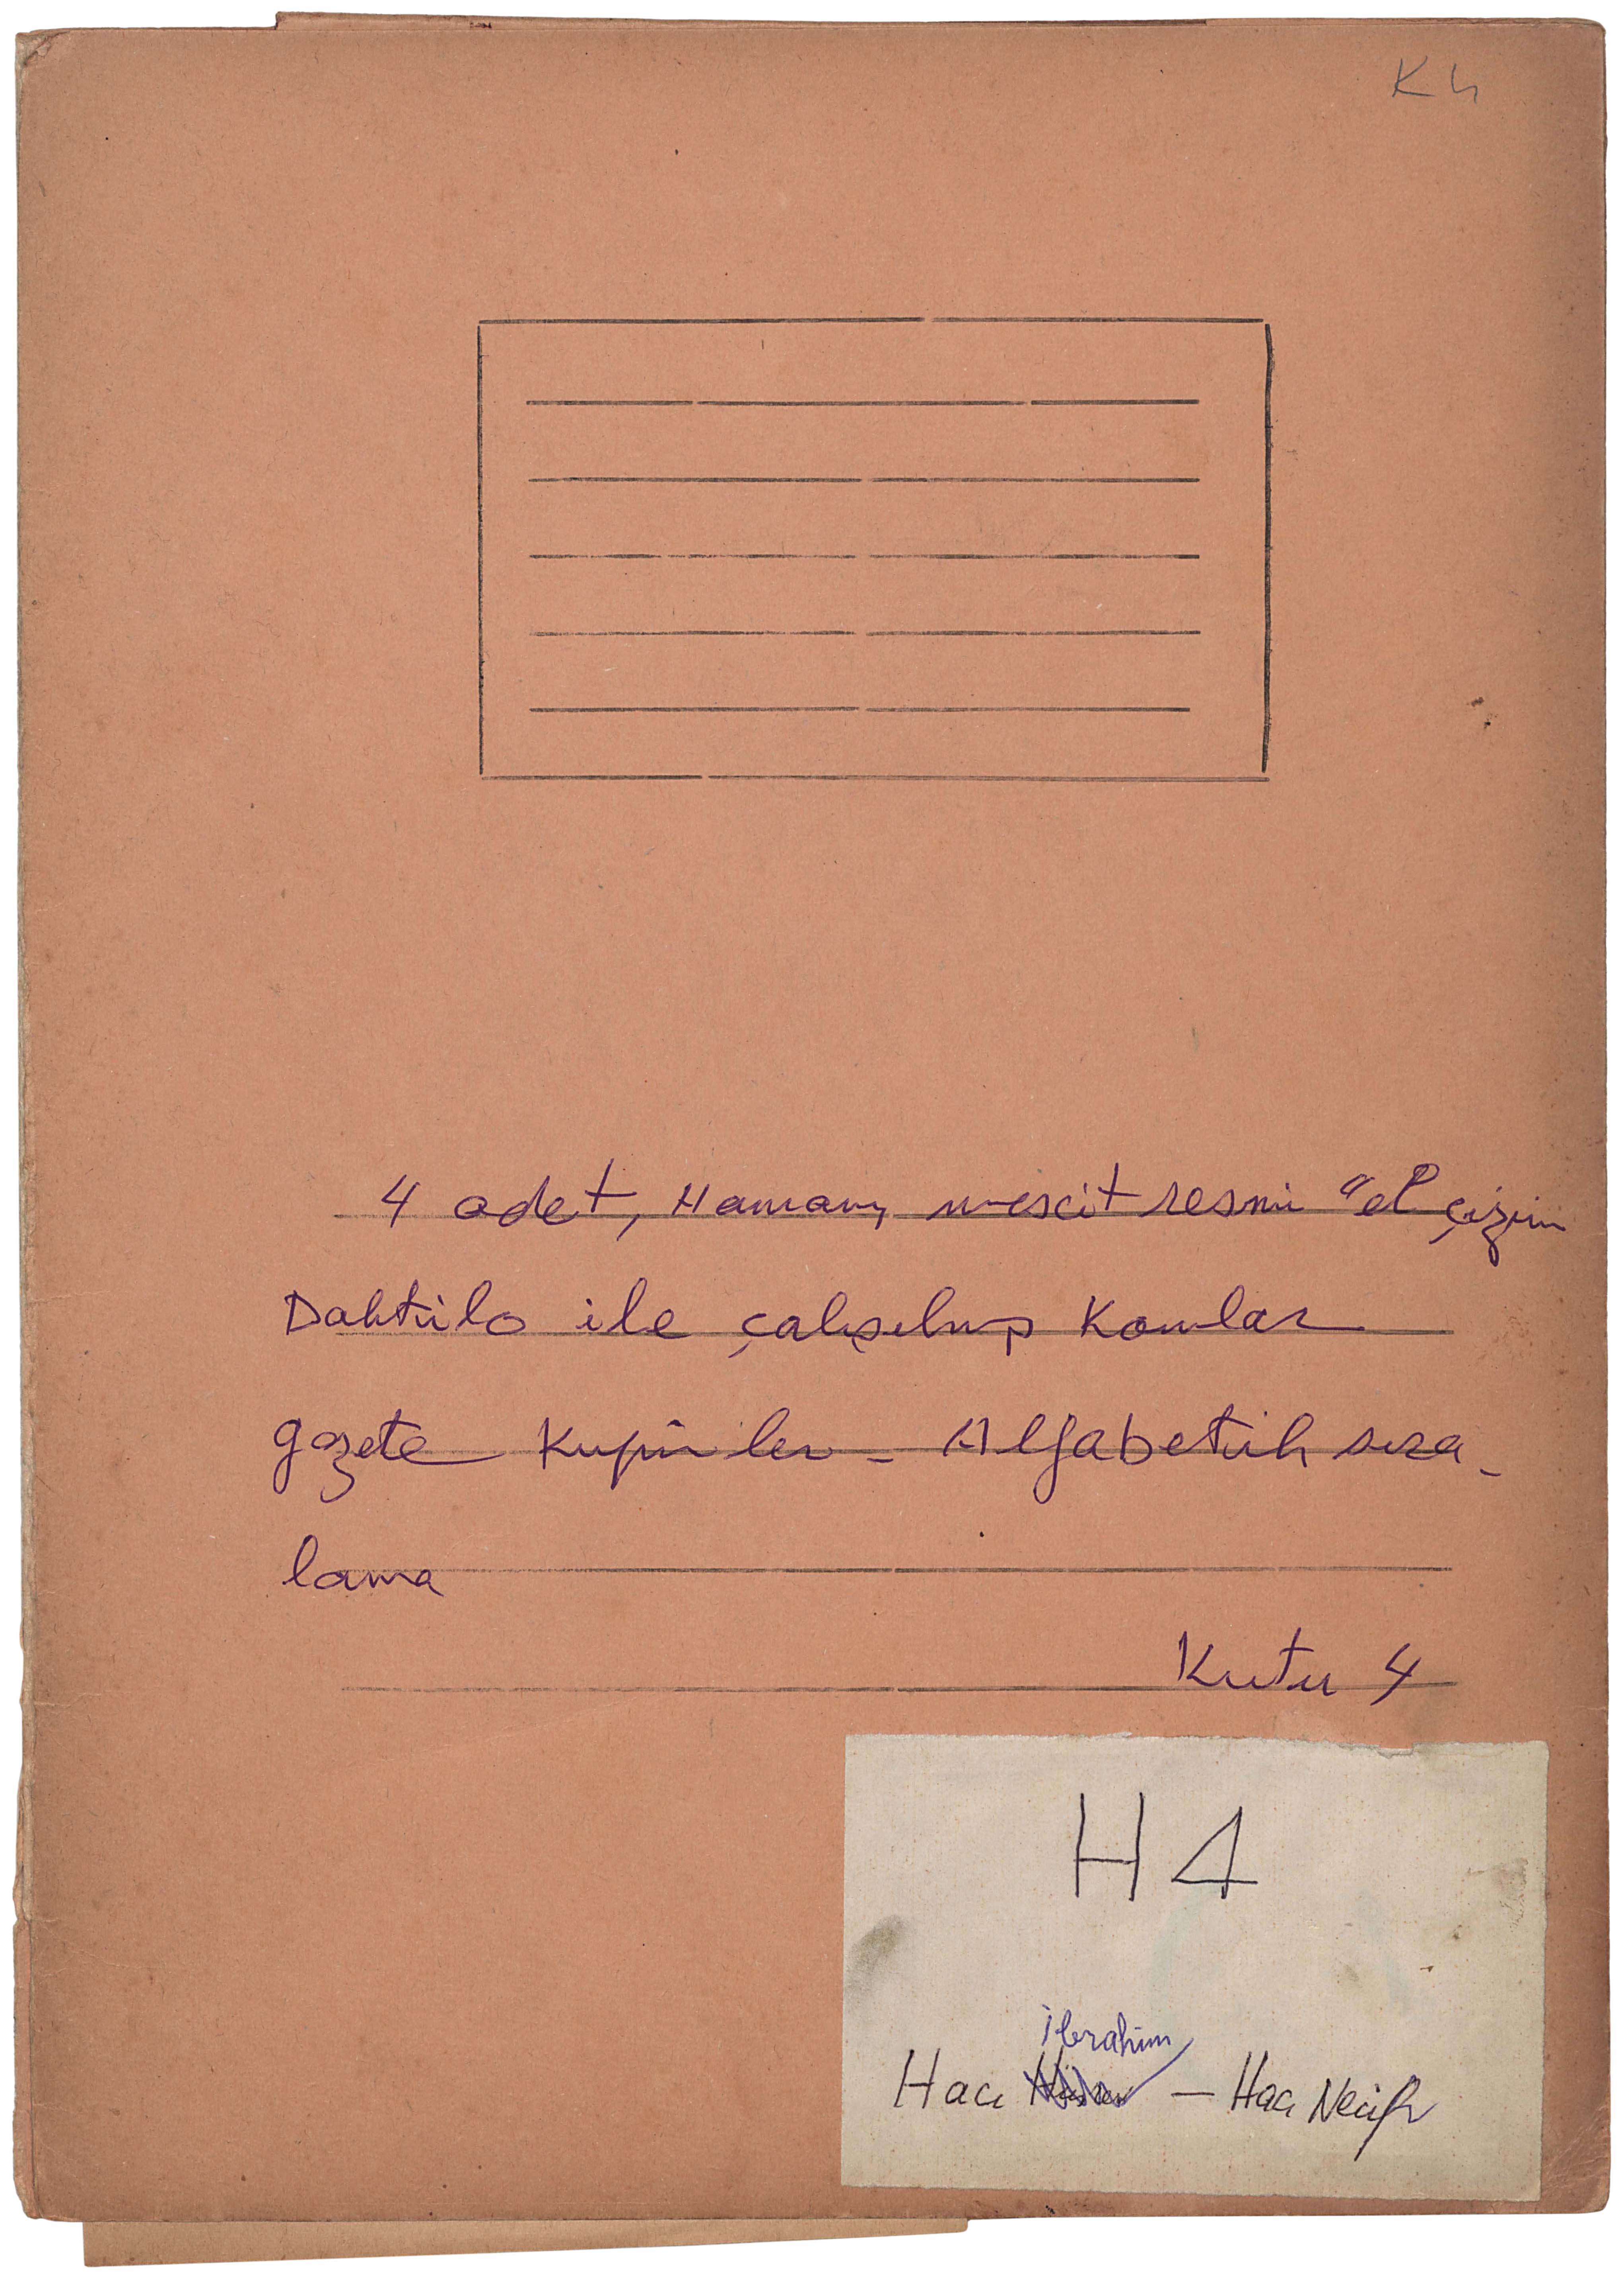 K4
4 adet, Hamam, mescit resmi "el çizim
Daktilo ile çalışılmış Konular
gazete Kupürler - Alfabetik sıra-
lama
Kutu 4
H4
İbrahim
Hacı — Hacı Necip